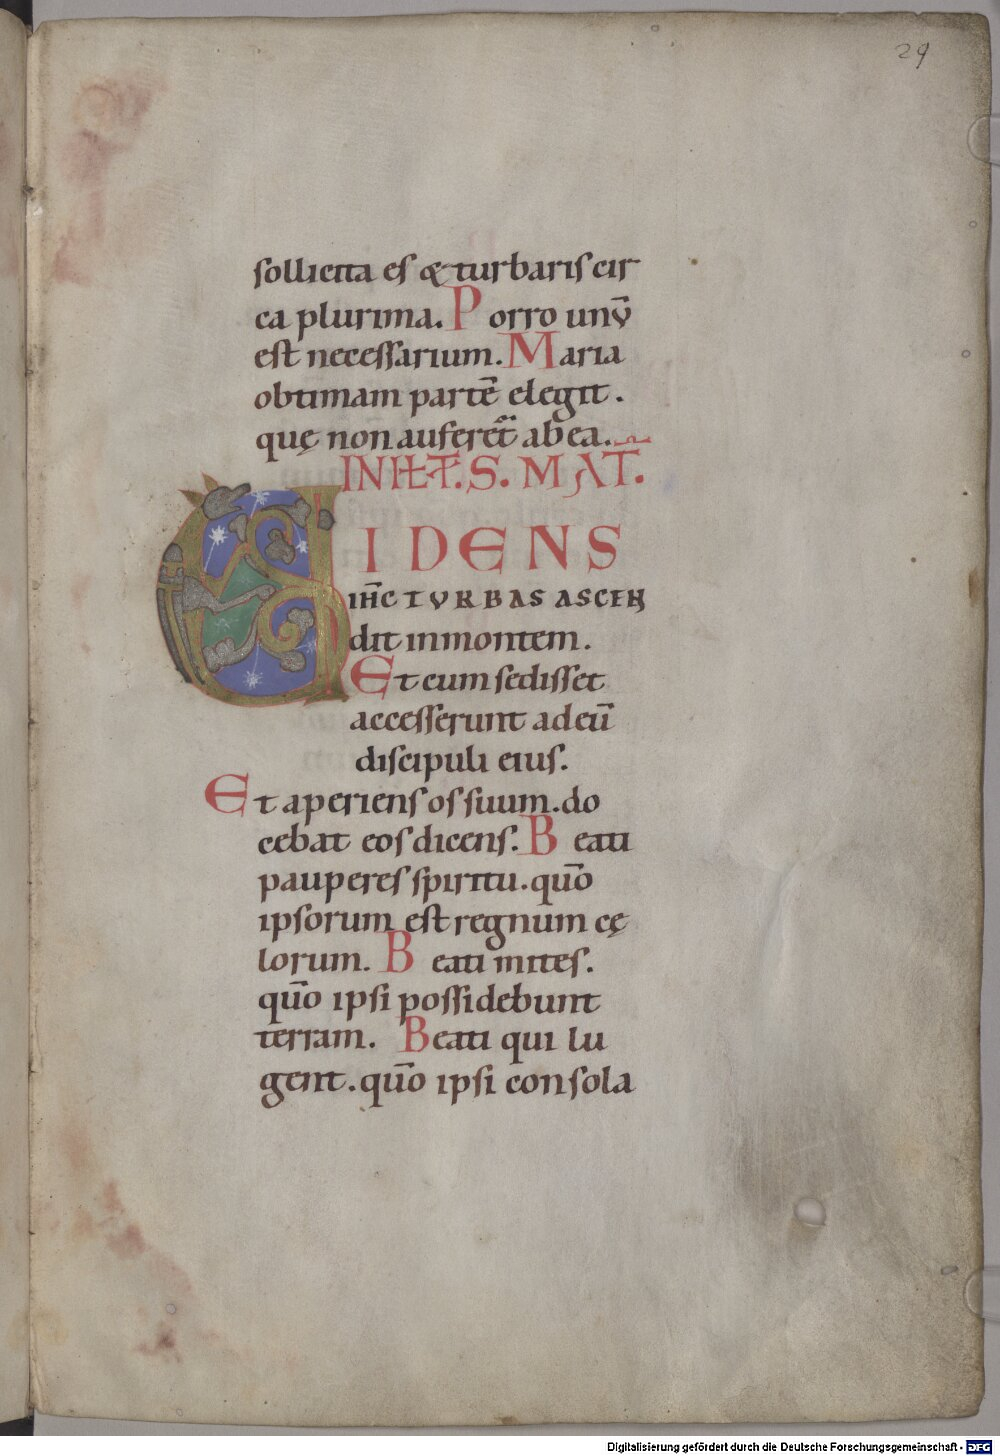 29
sollicita es & turbaris cir
ca plurima. Porro unū
est necessarium. Maria
obtimam partē elegit.
quę non auferet᷑ ab ea.
IN ILŁ T̄. S. MAT.
VIDENS
IHC TURBAS ASCEN
dit in montem.
Et cum sedisset
accesserunt ad eū
discipuli eius.
Et aperiens os suum. do
cebat eos dicens. Beati
pauperes spiritu. quō
ipsorum est regnum cę
lorum. Beati mites.
quō ipsi possidebunt
terram. Beati qui lu
gent. quō ipsi consola
Digitalisierung gefördert durch die Deutsche Forschungsgemeinschaft - DFG